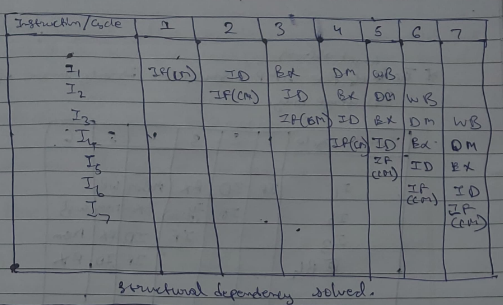 Instruction/Cycle 1 2 3 4 5 6 7
I1 IF(CM) ID EX DM WB
I2 IF(CM) ID EX DM WB
I3 IF(CM) ID EX DM WB
I4 IF(CM) ID EX DM
I5 IF(CM) ID EX
I6 IF(CM) ID
I7 IF(CM)
Structural dependency solved.